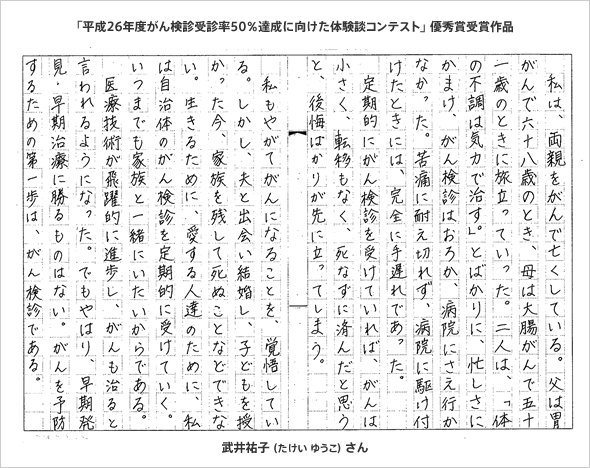 「平成26年度がん検診受診率50％達成に向けた体験談コンテスト」優秀賞受賞作品
私は、両親をがんで亡くしている。父は胃
がんで六十八歳のとき、母は大腸がんで五十
一歳のときに旅立っていった。二人は、「体
の不調は気力で治す」とばかりに、忙しさに
かまけ、がん検診はおろか、病院にさえ行か
なかった。苦痛に耐え切れず、病院に駆け付
けたときには、完全に手遅れであった。
定期的にがん検診を受けていれば、がんは
小さく、転移もなく、死なずに済んだと思う
と、後悔ばかりが先に立ってしまう。
私もやがてがんになることを、覚悟してい
る。しかし、夫と出会い結婚し、子どもを授
かった今、家族を残して死ぬことなどできな
い。生きるために、愛する人達のために、私
は自治体のがん検診を定期的に受けていく。
いつまでも家族と一緒にいたいからである。
医療技術が飛躍的に進歩し、がんも治ると
言われるようになった。でもやはり、早期発
見・早期治療に勝るものはない。がんを予防
するための第一歩は、がん検診である。
武井祐子 (たけい ゆうこ) さん